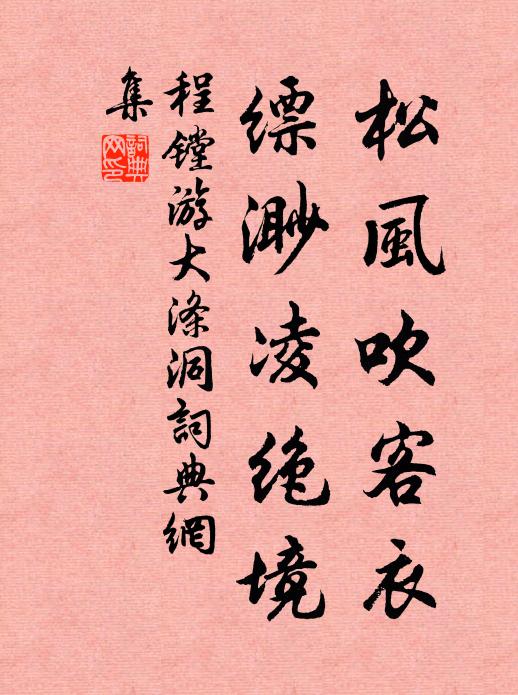 松風吹客衣
縹渺凌絶境
程鏜游大滌洞詞典網
集
詞典
网印